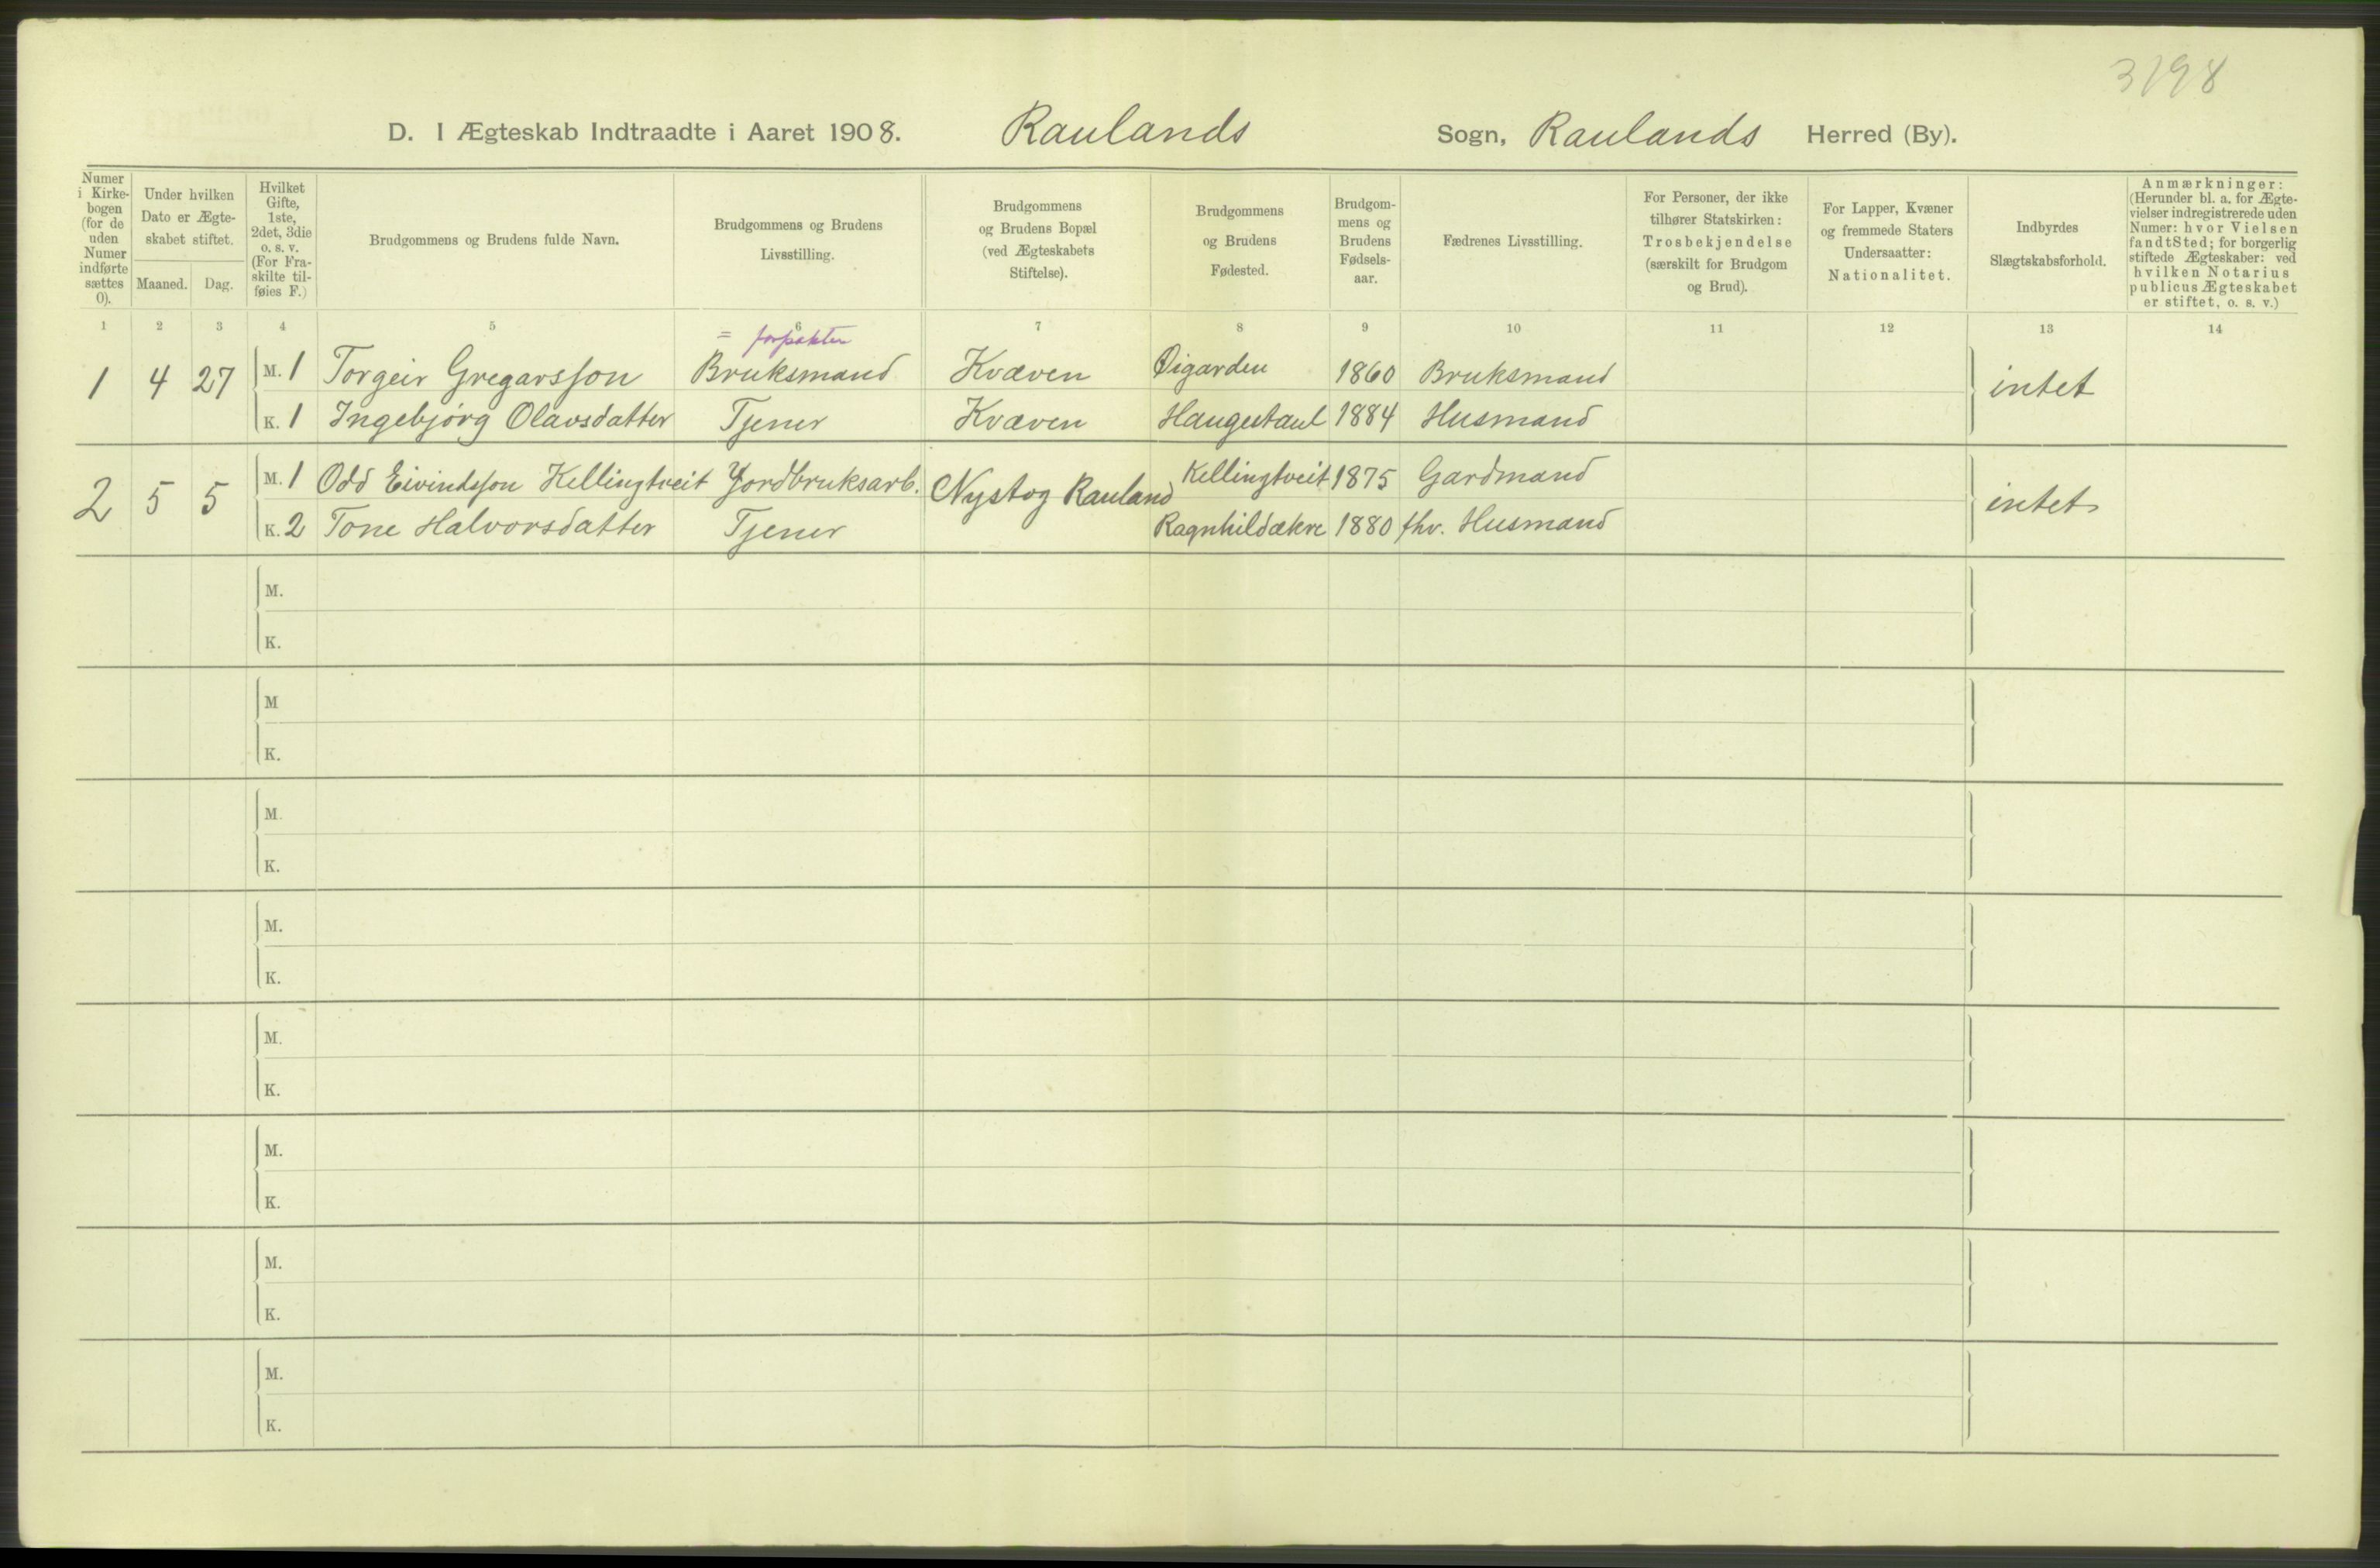 3198
D. I Ægteskab Indtraadte i Aaret 1908. Raulands Sogn, Raulands Herred (By).
Numer i Kirkebogen (for de uden Numer indførte sættes 0).
Under hvilken Dato er Ægteskabet stiftet.
Maaned. Dag.
Hvilket Gifte, 1ste, 2det, 3die o. s. v. (For Fraskilte tilføies F.)
Brudgommens og Brudens fulde Navn.
Brudgommens og Brudens Livsstilling.
Brudgommens og Brudens Bopæl (ved Ægteskabets Stiftelse).
Brudgommens og Brudens Fødested.
Brudgommens og Brudens Fødselsaar.
Fædrenes Livsstilling.
For Personer, der ikke tilhører Statskirken: Trosbekjendelse (særskilt for Brudgom og Brud).
For Lapper, Kvæner og fremmede Staters Undersaatter: Nationalitet.
Indbyrdes Slægtskabsforhold.
Anmærkninger: (Herunder bl. a. for Ægtevielser indregistrerede uden Numer: hvor Vielsen fandt Sted; for borgerlig stiftede Ægteskaber: ved hvilken Notarius publicus Ægteskabet er stiftet, o. s. v.)
1 2 3 4 5 6 7 8 9 10 11 12 13 14
= forpakter
1 4 27 M. 1 Torgeir Gregarsson Bruksmand Kvæven Øigarden 1860 Bruksmand intet
K. 1 Ingebjørg Olavsdatter Tjener Kvæven Haugestaul 1884 Husmand
2 5 5 M. 1 Odd Eivindsson Kellingtveit Jordbruksarb. Nystog Rauland Kellingtveit 1875 Gardmand intet
K. 2 Tone Halvorsdatter Tjener Ragnhildsækre 1880 fhv. Husmand
M.
K.
M
K.
M.
K.
M.
K.
M.
K.
M.
K.
M.
K.
M.
K.